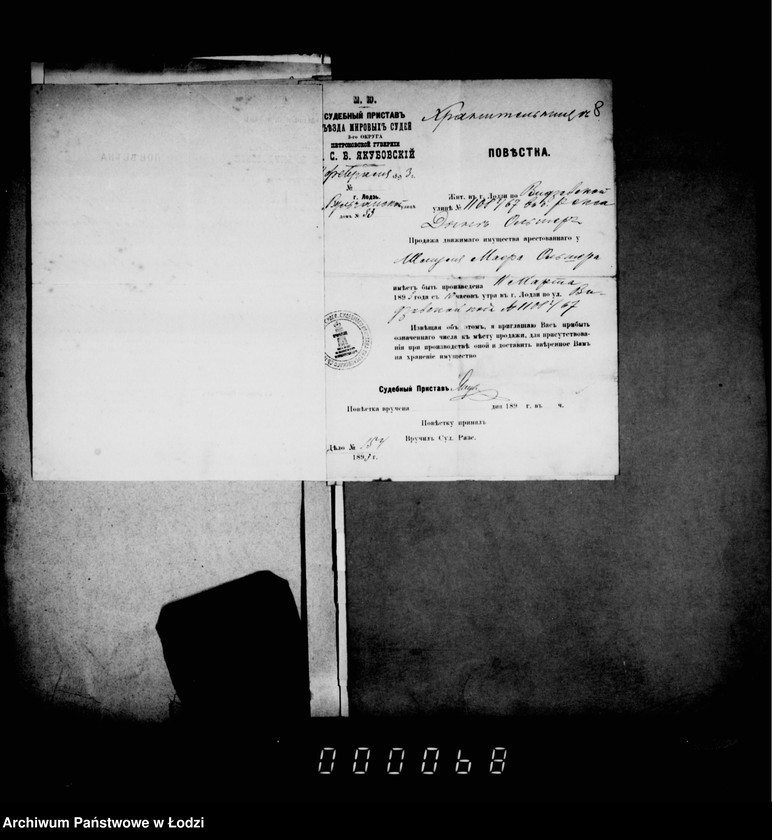 М. Ю.
СУДЕБНЫЙ ПРИСТАВЪ
ѢЗДА МИРОВЫХЪ СУДЕЙ
3-го ОКРУГА
ПЕТРОКОВСКОЙ ГУБЕРНІИ
С. В. ЯКУБОВСКІЙ
февраля 893 г.
№
г. Лодзь.
улица
домъ № 53
8
ПОВѢСТКА.
Жит. въ г. Лодзи по Видзевской
улицѣ № 1108/67
Продажа движимаго имущества арестованнаго у
Шмуля Маера
имѣетъ быть произведена 11 Марта
1893 года съ 10 часовъ утра въ г. Лодзи по ул. Ви-
дзевской подъ № 1108/67
Извѣщая объ этомъ, я приглашаю Васъ прибыть
означеннаго числа къ мѣсту продажи, для присутствова-
нія при производствѣ оной и доставить ввѣренное Вамъ
на храненіе имущество
Судебный Приставъ
Повѣстка вручена дня 189 г. въ ч.
Повѣстку принялъ
Вручилъ Суд. Разс.
Дѣло № 157
1893 г.
000068
Archiwum Państwowe w Łodzi